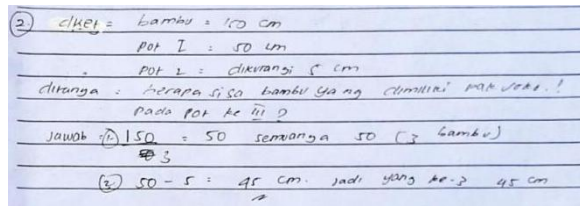 2. diket = bambu = 150 cm
pot I : 50 cm
pot 2 : dikurangi 5 cm
ditanya : berapa sisa bambu yang dimiliki pak joko.!
pada pot ke III ?
Jawab = 1. 150 = 50 semuanya 50 (3 bambu)
3
2. 50 - 5 = 45 cm. jadi yang ke-3 45 cm